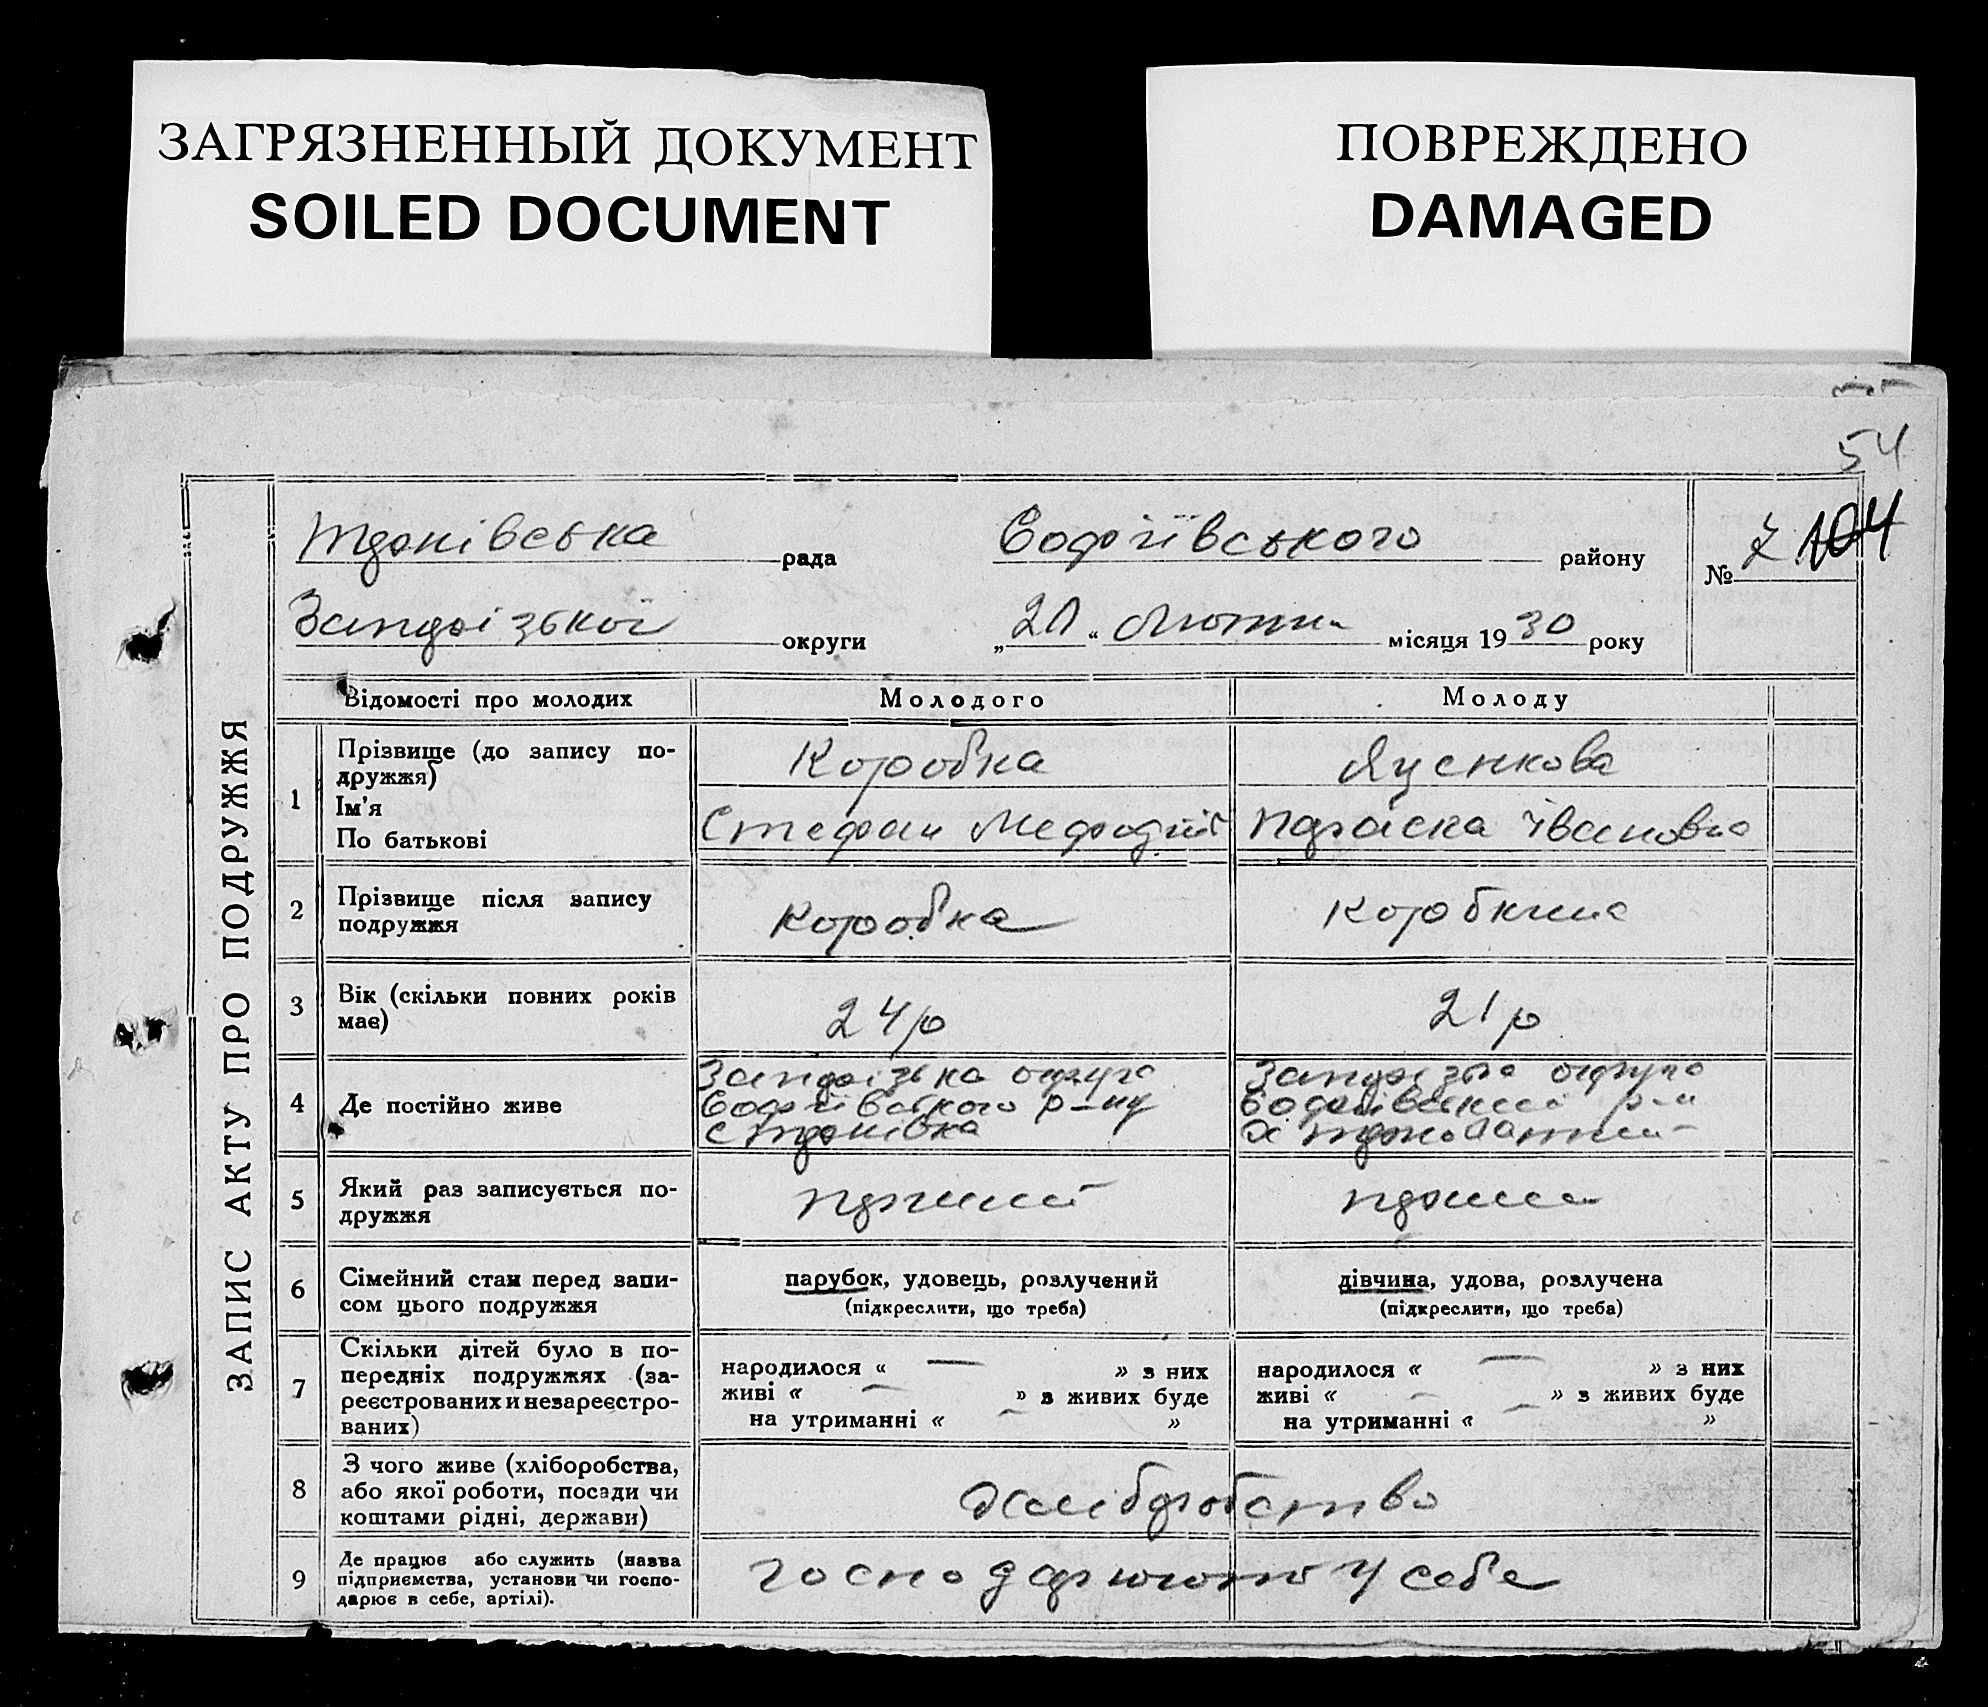 ЗАГРЯЗНЕННЫЙ ДОКУМЕНТ
SOILED DOCUMENT
ПОВРЕЖДЕНО
DAMAGED
54
рада
Софіївського району
№ 7 104
округи
„ “ місяця 1930 року
ЗАПИС АКТУ ПРО ПОДРУЖЖЯ
Відомості про молодих
Молодого
Молоду
1
Прізвище (до запису по-
дружжя)
Ім'я
По батькові
Коробка
Стефан
Яценкова
Параска Івановна
2
Прізвище після запису
подружжя
Коробка
3
Вік (скільки повних років
має)
24 р
21 р
4
Де постійно живе
округа
Софіївського р-ну
округа
5
Який раз записується по-
дружжя
6
Сімейний стан перед запи-
сом цього подружжя
парубок, удовець, розлучений
(підкреслити, що треба)
дівчина, удова, розлучена
(підкреслити, що треба)
7
Скільки дітей було в по-
передніх подружжях (за-
реєстрованих и незареєстро-
ваних)
народилося « — » з них
живі « — » з живих буде
на утриманні « — »
народилося « — » з них
живі « — » з живих буде
на утриманні « — »
8
З чого живе (хліборобства,
або якої роботи, посади чи
коштами рідні, держави)
хліборобство
9
Де працює або служить (назва
підприємства, установи чи госпо-
дарює в себе, артілі).
у себе